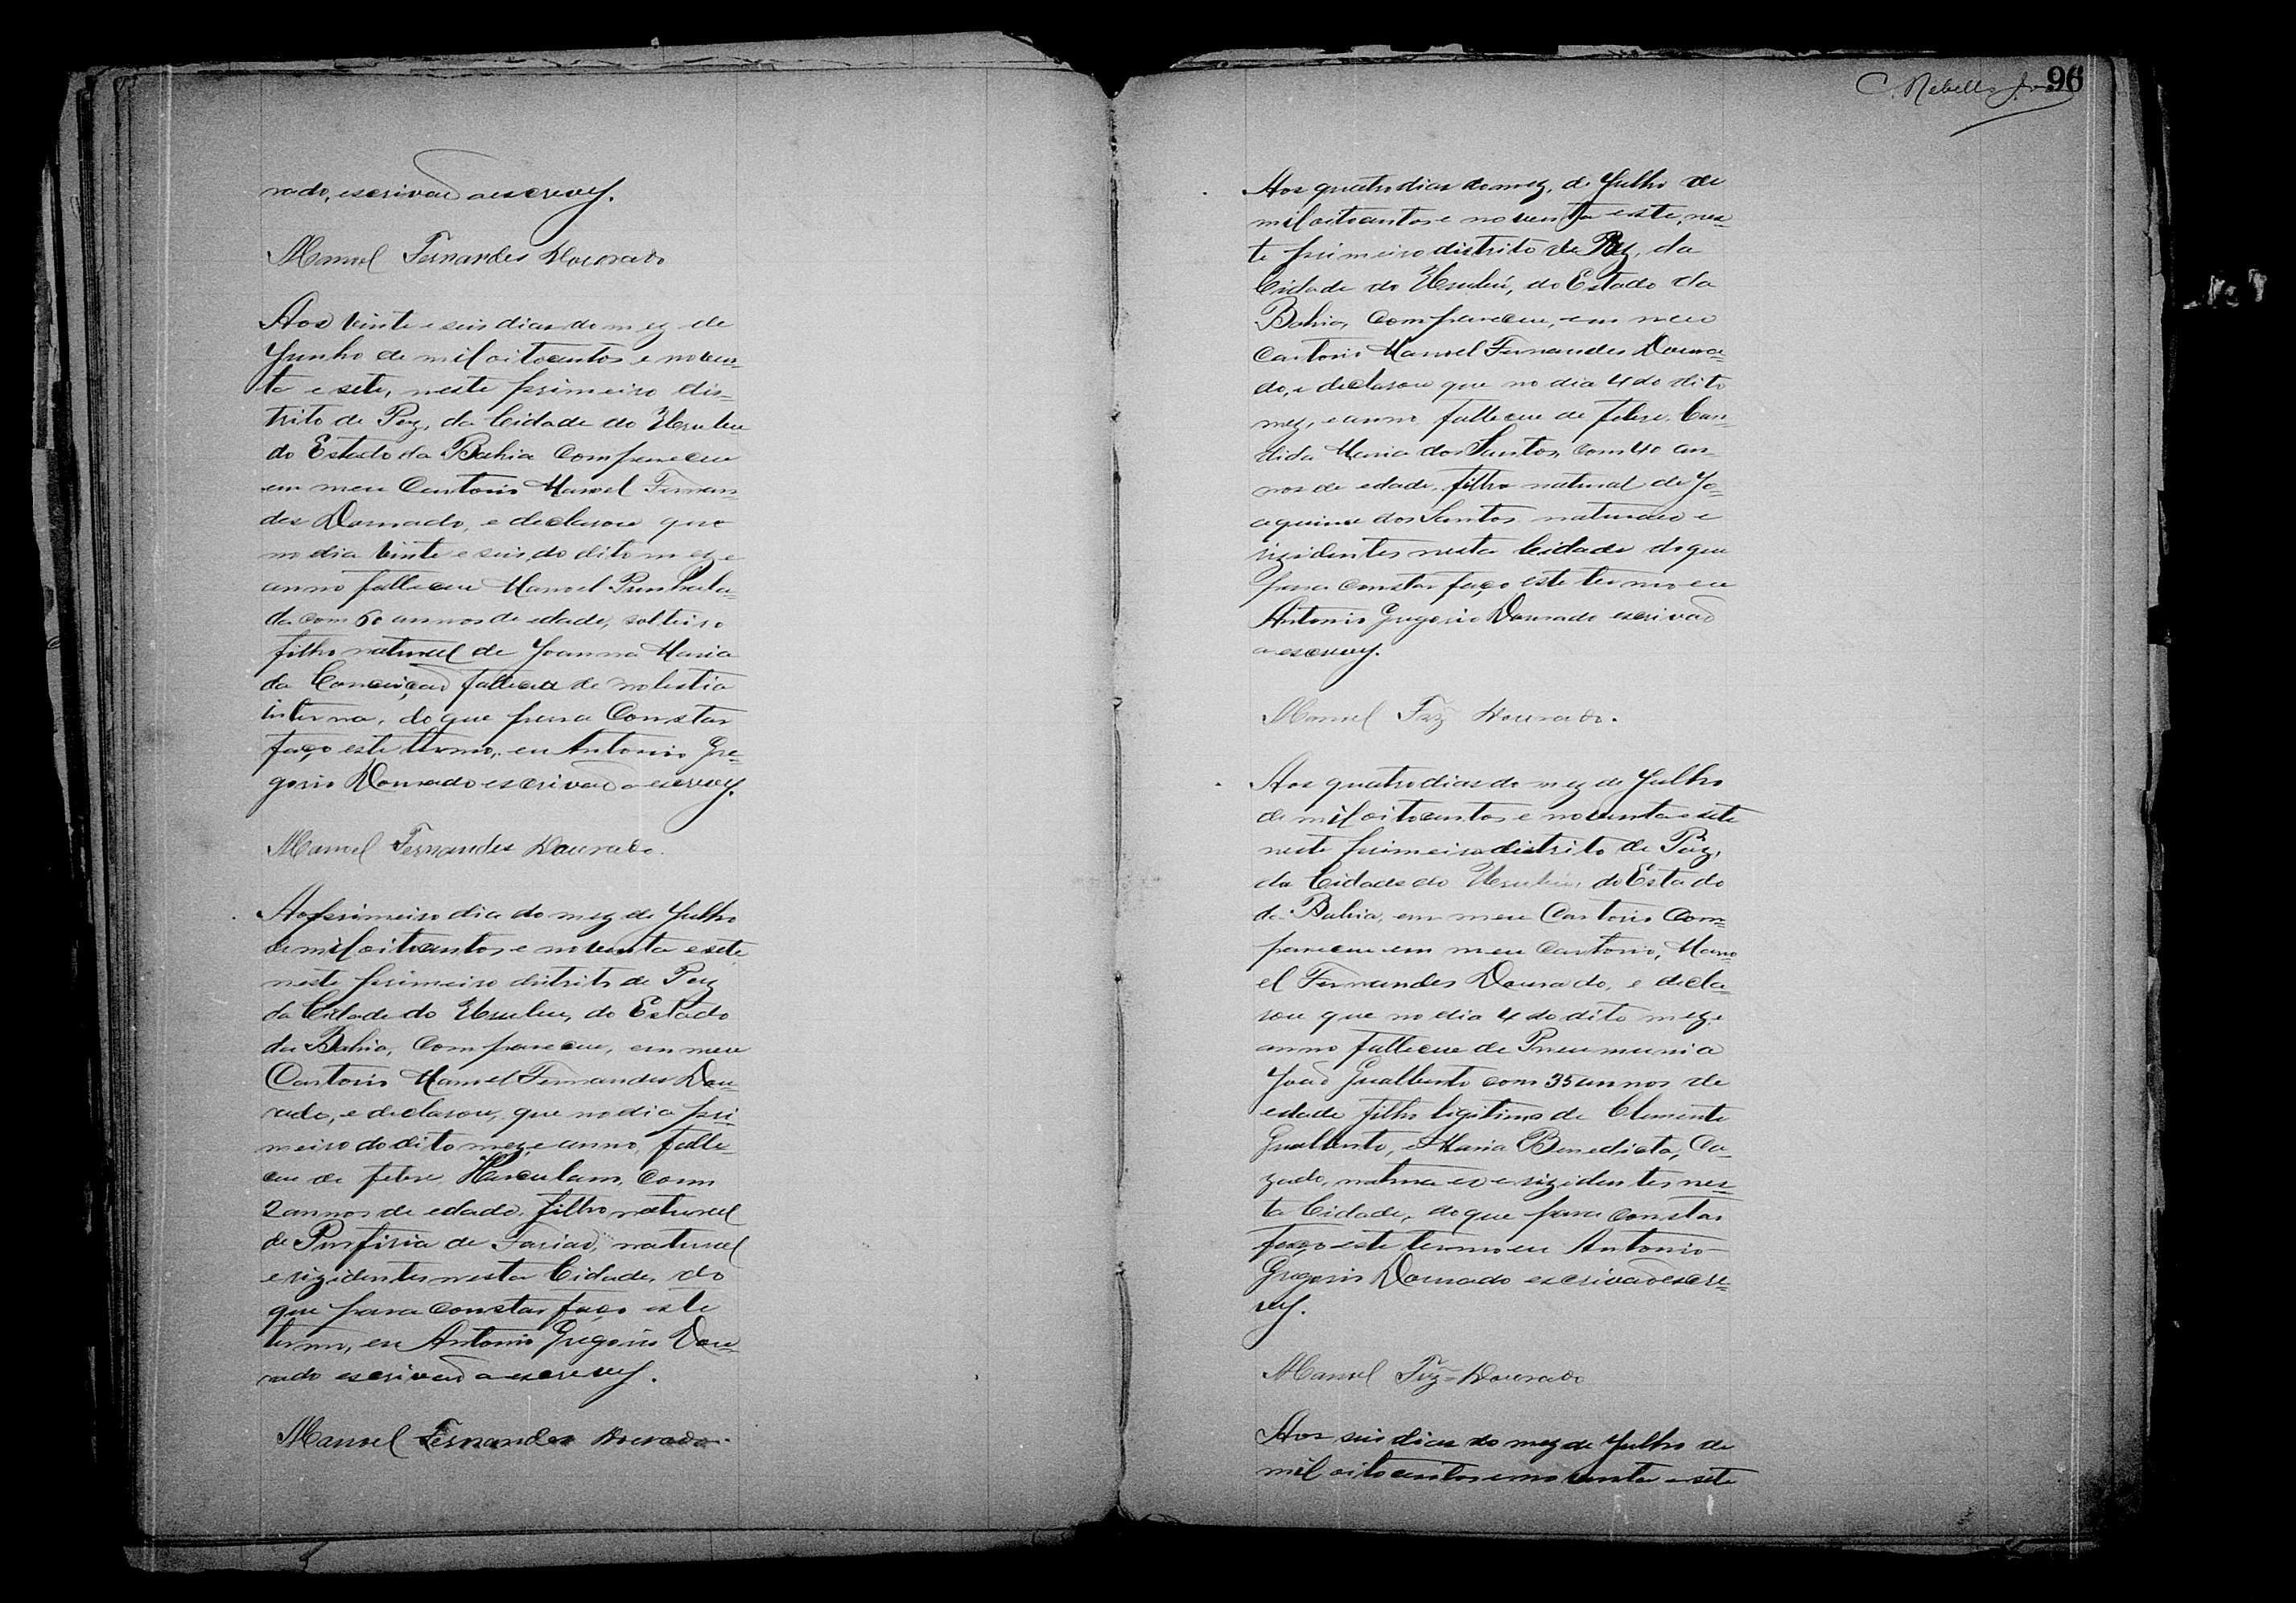 rado, escrivaõ a escrevy.
Manoel Fernandes Dourado
Aos vinte e seis dias do mez de
Junho de mil oitocentos e noven-
ta e sete, neste primeiro dis-
trito de Paz, da Cidade do Urubu
do Estado da Bahia compareceu
em meu Cartorio Manoel Fernan-
des Dourado, e declarou que
no dia vinte e seis, do dito mez e
anno falleceu Manoel
da com 60 annos de edade, solteiro
filho natural de Joanna Maria
da Conceiçaõ falleceu de molestia
interna, do que para Constar
faço este termo, eu Antonio Gre-
gorio Dourado escrivaõ a escrevy.
Manoel Fernandes Dourado.
Ao primeiro dia do mez de Julho
de mil oitocentos e noventa e sete
neste primeiro distrito de Paz
da Cidade do Urubu, do Estado
da Bahia, compareceu, em meu
Cartorio Manoel Fernandes Dou-
rado, e declarou, que no dia pri-
meiro do dito mez, e anno, falle-
ceu de febre Herculano, com
2 annos de edade, filho natural
de Porfiria de Farias, natural
e rizidentes nesta Cidade, do
que para constar faço este
termo, eu Antonio Gregorio Dou-
rado escrivaõ a escrevy.
Manoel Fernandes Dourado.
C. Rebello 96
Aos quatro dias do mez, de Julho de
mil oitocentos e noventa e sete, nes-
te primeiro distrito de Paz, da
Cidade do Urubú, do Estado da
Bahia, compareceu, em meu
Cartorio Manoel Fernandes Doura-
do, e declarou que no dia 4 do dito
mez, e anno falleceu de febre, Can-
dida Maria dos Santos, com 40 an-
nos de edade, filha natural de Jo-
aquina dos Santos naturaes e
rizidentes nesta Cidade do que
para constar faço este termo eu
Antonio Gregorio Dourado escrivaõ
a escrevy.
Manoel Frz Dourado.
Aos quatro dias do mez de Julho
de mil oitocentos e noventa e sete
neste primeiro distrito de Paz,
da Cidade do Urubú, do Estado
da Bahia, em meu Cartorio com-
pareceu em meu cartorio, Mano-
el Fernandes Dourado, e decla-
rou que no dia 4 do dito mez e
anno falleceu de Pneumunia
Joaõ Gualberto com 35 annos de
edade filho ligitimo de Clemente
Gualberto, e Maria Benedicta, Ca-
zado, naturaes e rizidentes nes-
ta Cidade, do que para constar
faço este termo eu Antonio
Gregorio Dourado escrivaõ escre-
vy.
Manoel Frz Dourado
Aos seis dias do mez de Julho de
mil oitocentos e noventa e sete